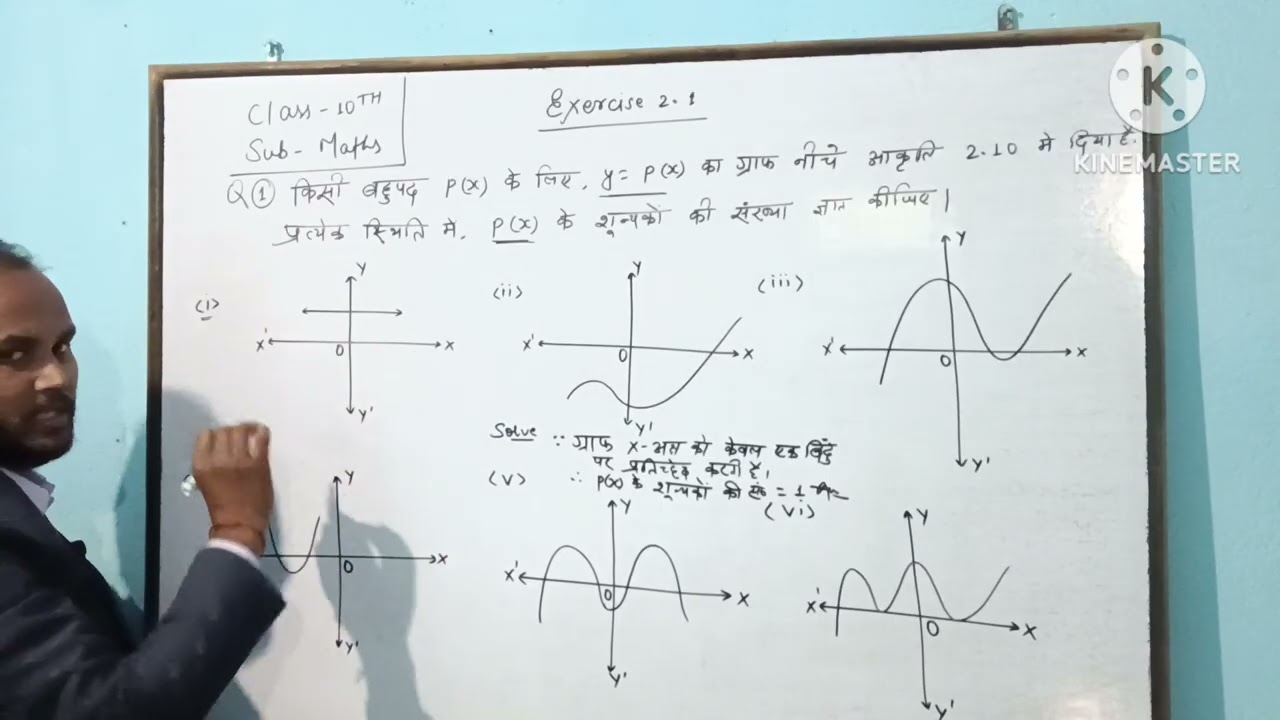 Class - 10TH
Sub - Maths
Exercise 2.1
KINEMASTER
Q① किसी बहुपद P(x) के लिए, y = P(x) का ग्राफ नीचे आकृति 2.10 मे दिया है.
प्रत्येक स्थिति मे, P(x) के शून्यकों की संख्या ज्ञात कीजिए।
(i)
Y
X' O X
Y'
(ii)
Y
X' O X
Y'
(iii)
Y
X' O X
Y'
Solve ∵ ग्राफ X-अक्ष को केवल एक बिंदु
पर प्रतिच्छेद करती है।
∴ P(x) के शून्यकों की सं० = 1
Y
O X
Y'
(v)
Y
X' O X
Y'
(vi)
Y
X' O X
Y'